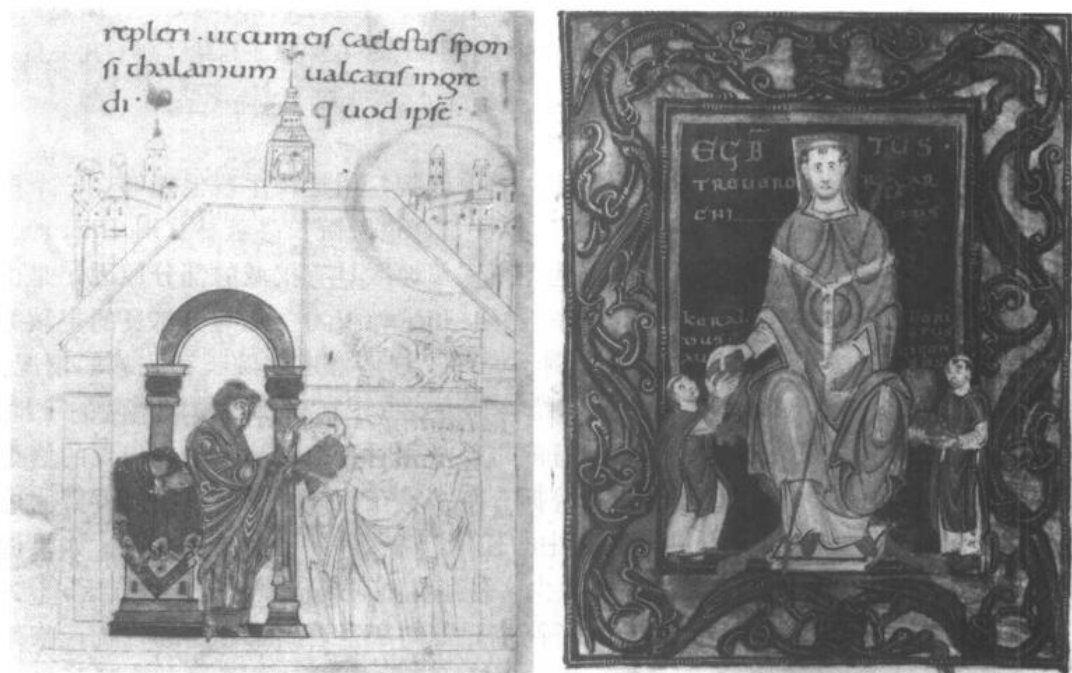 repleri · ut cum eis caelestis spon
si thalamum ualeatis ingre
di · quod ipse ·
EGB̄ TUS ·
TREVERO R AR
CHI
keral
vus